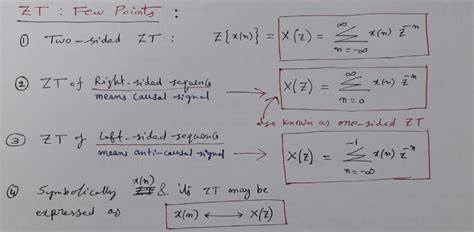 ZT : Few Points :
① Two-sided ZT : Z{x(n)} = X(z) = ∞ Σ n=-∞ x(n) z^-n
② ZT of Right-sided sequence → X(z) = ∞ Σ n=0 x(n) z^-n
means causal signal
also known as one-sided ZT
③ ZT of Left-sided sequence → X(z) = -1 Σ n=-∞ x(n) z^-n
means anti-causal signal
④ Symbolically x(n) & its ZT may be
expressed as x(n) ⟷ X(z)